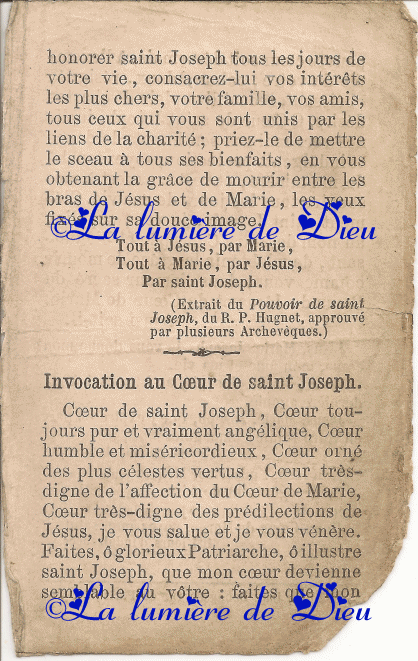 honorer saint Joseph tous les jours de
votre vie, consacrez-lui vos intérêts
les plus chers, votre famille, vos amis,
tous ceux qui vous sont unis par les
liens de la charité ; priez-le de mettre
le sceau à tous ses bienfaits, en vous
obtenant la grâce de mourir entre les
bras de Jésus et de Marie, les yeux
fixés sur sa douce image.
©La lumière de Dieu
Tout à Jésus, par Marie,
Tout à Marie, par Jésus,
Par saint Joseph.
(Extrait du Pouvoir de saint
Joseph, du R. P. Hugnet, approuvé
par plusieurs Archevèques.)
Invocation au Cœur de saint Joseph.
Cœur de saint Joseph, Cœur tou-
jours pur et vraiment angélique, Cœur
humble et miséricordieux, Cœur orné
des plus célestes vertus, Cœur très-
digne de l'affection du Cœur de Marie,
Cœur très-digne des prédilections de
Jésus, je vous salue et je vous vénère.
Faites, ô glorieux Patriarche, ô illustre
saint Joseph, que mon cœur devienne
semblable au vôtre : faites que mon
©La lumière de Dieu